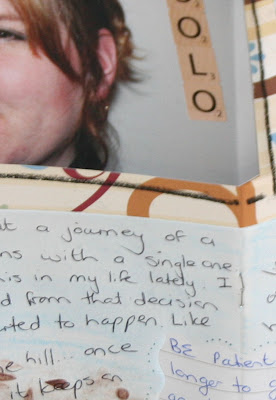 OLO
at a journey of a
ns with a single one.
is in my life lately. I
d from that decision
rted to happen. Like
e hill... once
it keeps on
Be patient
longer to g